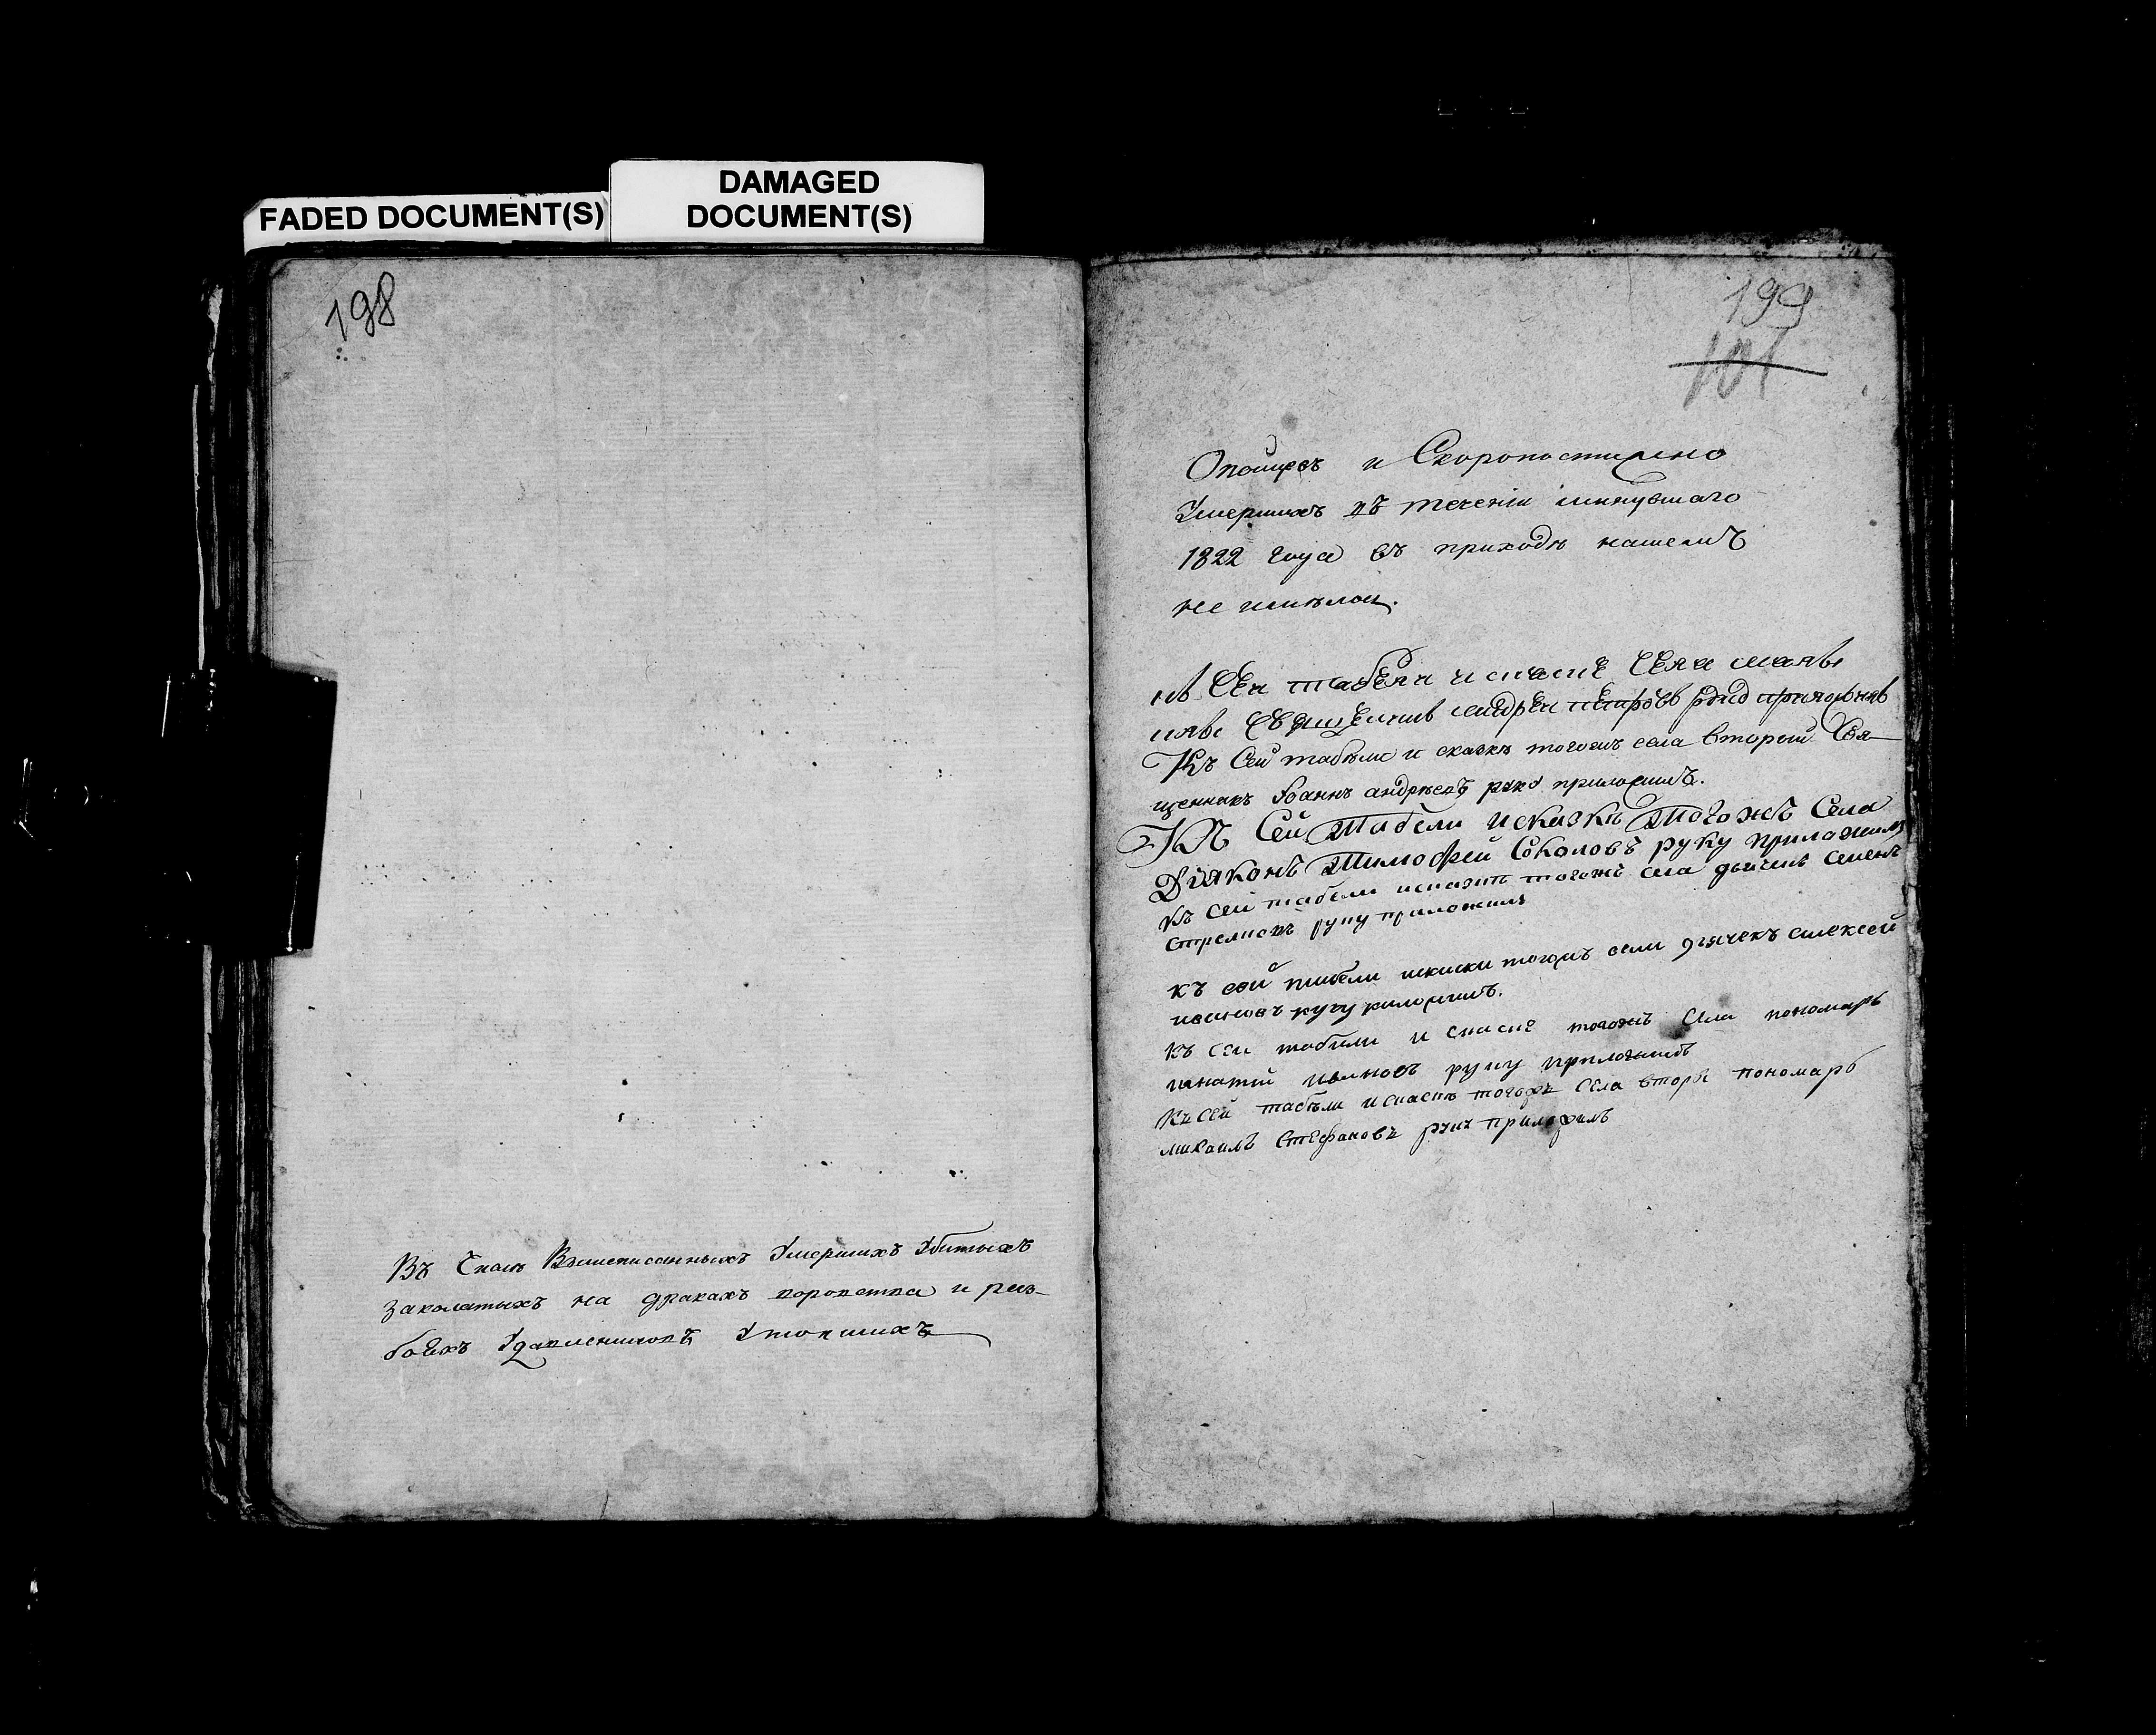 FADED DOCUMENT(S)
DAMAGED
DOCUMENT(S)
198
Въ Числѣ Вышеписанныхъ Умершихъ Убитыхъ
Заколатыхъ на дракахъ воровства и раз-
боехъ Удавлениковъ Утопшихъ
199
101
Опойцовъ и Скоропостижно
Умершихъ въ теченіи минувшаго
1822 года въ приходѣ нашемъ
не имѣлои.
Къ Сей табели и
Священникъ Андрей Петровъ
Къ Сей табѣли и сказкѣ тогожъ села вторый Свя-
щенникъ Иоаннъ андрѣевъ руку приложилъ.
Къ Сей Табели и сказкѣ Тогожъ Села
Діяконъ Тимофей Соколовъ руку приложилъ
къ сей табели тогожъ села Семенъ
руку приложилъ
къ сей табели тогожъ села дьячекъ алексей
ивановъ руку приложилъ.
къ сеи табели и тогожъ села пономарь
игнатий ивановъ руку приложилъ
Къ сей табѣли тогожъ села вторы пономарь
михаилъ Стефановъ руку приложилъ